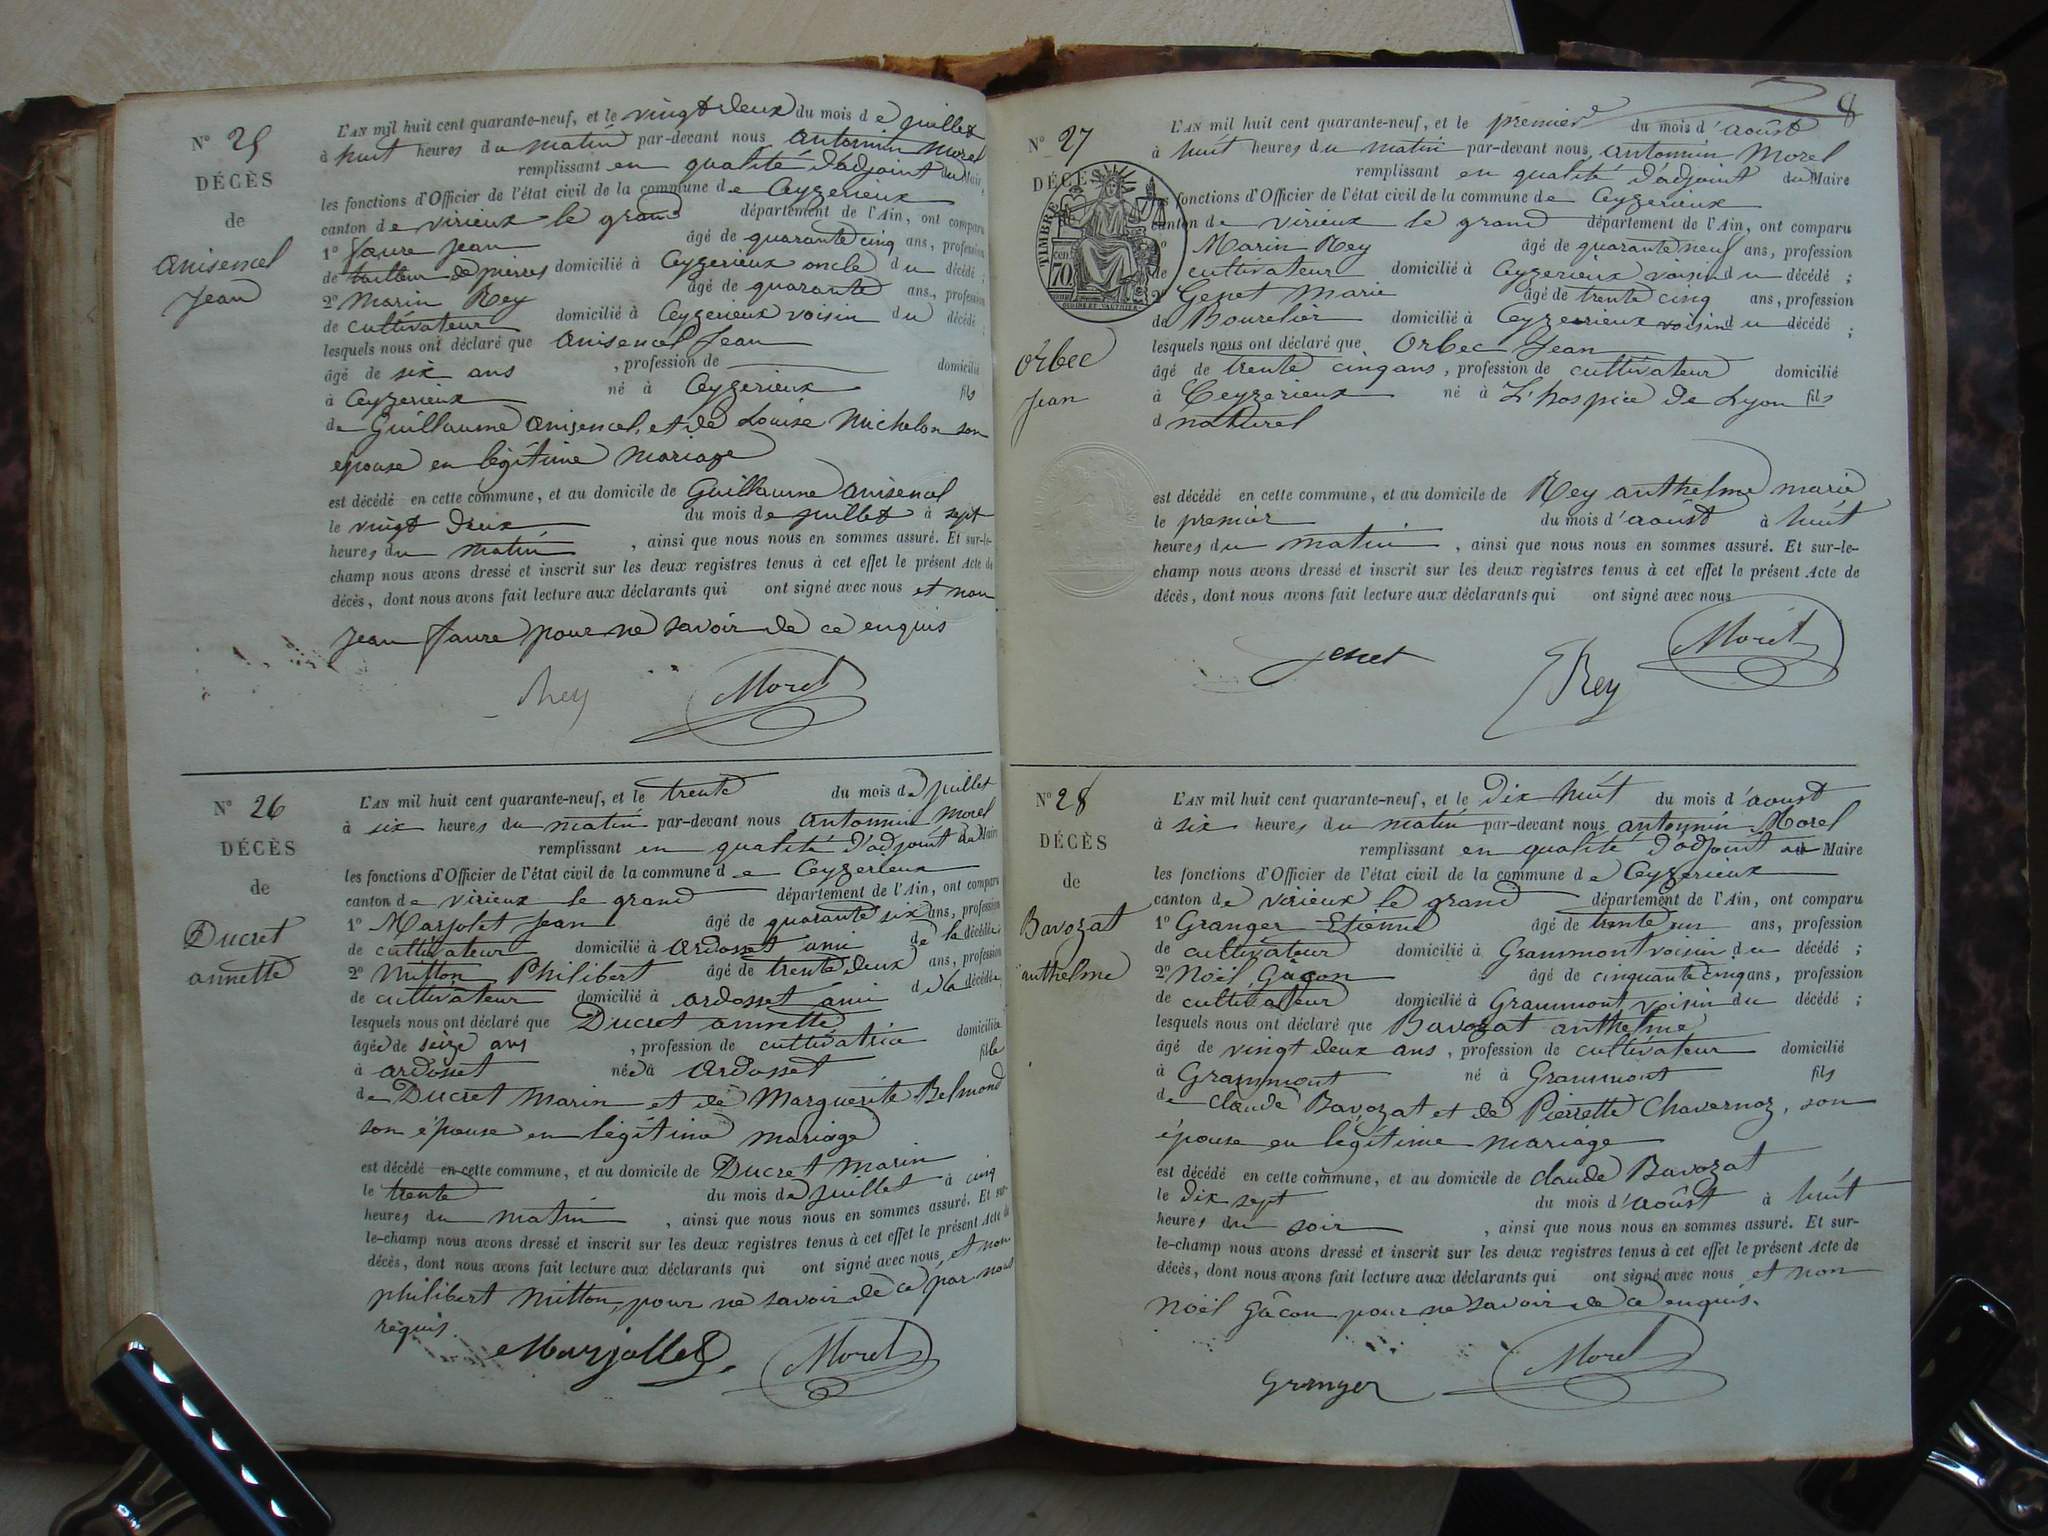 N° 25
DÉCÈS
de
Anisencel
Jean
L'AN mil huit cent quarante-neuf, et le vingt deux du mois de juillet
à huit heures du matin par-devant nous Antonnin Morel
remplissant en qualité d'adjoint du Maire
les fonctions d'Officier de l'état civil de la commune de Ceyzerieux
canton de virieux le grand département de l'Ain, ont comparu
1° faure Jean âgé de quarante cinq ans, profession
de tailleur de pierres domicilié à Ceyzerieux oncle du décédé ;
2° Marin Rey âgé de quarante ans, profession
de cultivateur domicilié à Ceyzerieux voisin du décédé ;
lesquels nous ont déclaré que Anisencel Jean
âgé de six ans , profession de domicilié
à Ceyzerieux né à Ceyzerieux fils
de Guillaume Anisencel, et de Louise Michelon son
epouse en légitime mariage
est décédé en cette commune, et au domicile de Guillaume Anisencel
le vingt deux du mois de juillet à sept
heures du matin , ainsi que nous nous en sommes assuré. Et sur-le-
champ nous avons dressé et inscrit sur les deux registres tenus à cet effet le présent Acte de
décès, dont nous avons fait lecture aux déclarants qui ont signé avec nous et non
Jean faure pour ne savoir de ce enquis
Rey Morel
N° 26
DÉCÈS
de
Ducret
annette
L'AN mil huit cent quarante-neuf, et le trente du mois de juillet
à six heures du matin par-devant nous Antonnin Morel
remplissant en qualité d'adjoint du Maire
les fonctions d'Officier de l'état civil de la commune de Ceyzerieux
canton de virieux le grand département de l'Ain, ont comparu
1° Marjolet Jean âgé de quarante six ans, profession
de cultivateur domicilié à ardosset ami de la décédée ;
2° Mitton Philibert âgé de trente deux ans, profession
de cultivateur domicilié à ardosset ami de la décédée ;
lesquels nous ont déclaré que Ducret annette
âgée de seize ans , profession de cultivatrice domiciliée
à ardosset née à ardosset fille
de Ducret Marin et de Marguerite Belmond
son épouse en légitime mariage
est décédé en cette commune, et au domicile de Ducret Marin
le trente du mois de juillet à cinq
heures du matin , ainsi que nous nous en sommes assuré. Et sur-
le-champ nous avons dressé et inscrit sur les deux registres tenus à cet effet le présent Acte de
décès, dont nous avons fait lecture aux déclarants qui ont signé avec nous et non
philibert Mitton, pour ne savoir de ce par nous
requis.
Marjollet Morel
8
N° 27
DÉCÈS
TIMBRE
70 cen
Orbec
Jean
L'AN mil huit cent quarante-neuf, et le premier du mois d'août
à huit heures du matin par-devant nous Antonnin Morel
remplissant en qualité d'adjoint du Maire
les fonctions d'Officier de l'état civil de la commune de Ceyzerieux
canton de virieux le grand département de l'Ain, ont comparu
1° Marin Rey âgé de quarante neuf ans, profession
de cultivateur domicilié à Ceyzerieux voisin du décédé ;
2° Genet Marie âgé de trente cinq ans, profession
de Bourelier domicilié à Ceyzerieux voisin du décédé ;
lesquels nous ont déclaré que Orbec Jean
âgé de trente cinq ans , profession de cultivateur domicilié
à Ceyzerieux né à L'hospice de Lyon fils
d naturel
est décédé en cette commune, et au domicile de Rey anthelme marie
le premier du mois d'août à huit
heures du matin , ainsi que nous nous en sommes assuré. Et sur-le-
champ nous avons dressé et inscrit sur les deux registres tenus à cet effet le présent Acte de
décès, dont nous avons fait lecture aux déclarants qui ont signé avec nous
Genet Rey Morel
N° 28
DÉCÈS
de
Bavozat
anthelme
L'AN mil huit cent quarante-neuf, et le dix huit du mois d'aoust
à six heures du matin par-devant nous antonnin Morel
remplissant en qualité d'adjoint au Maire
les fonctions d'Officier de l'état civil de la commune de Ceyzerieux
canton de virieux le grand département de l'Ain, ont comparu
1° Granger Etienne âgé de trente un ans, profession
de cultivateur domicilié à Grammont voisin du décédé ;
2° Noël Gâcon âgé de cinquante cinq ans, profession
de cultivateur domicilié à Grammont voisin du décédé ;
lesquels nous ont déclaré que Bavozat anthelme
âgé de vingt deux ans , profession de cultivateur domicilié
à Grammont né à Grammont fils
de claude Bavozat et de Pierrette Chavernoz, son
épouse en légitime mariage
est décédé en cette commune, et au domicile de claude Bavozat
le dix sept du mois d'août à huit
heures du soir , ainsi que nous nous en sommes assuré. Et sur-
le-champ nous avons dressé et inscrit sur les deux registres tenus à cet effet le présent Acte de
décès, dont nous avons fait lecture aux déclarants qui ont signé avec nous et non
Noël Gâcon pour ne savoir de ce enquis.
Granger Morel